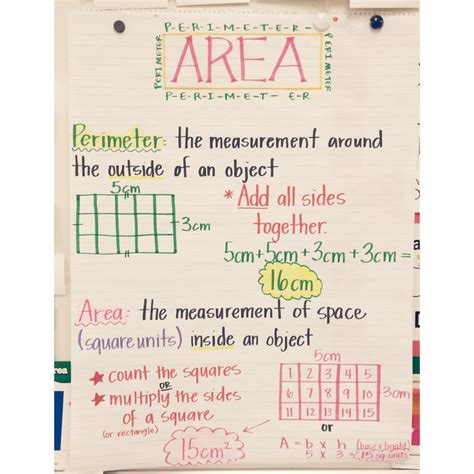 P-E-R-I-M-E-T-E-R-
PERIMETER
AREA
PERIMETER
P-E-R-I-M-E-T-E-R
Perimeter: the measurement around
the outside of an object
5cm
3cm
* Add all sides
together.
5cm+5cm+3cm+3cm=
16cm
Area: the measurement of space
(square units) inside an object
★ count the squares
OR
★ multiply the sides
of a square
(or rectangle)
15cm²
5cm
1 2 3 4 5
6 7 8 9 10
11 12 13 14 15
3cm
or
A = b x h (base x height)
5 x 3 = 15 sq. units